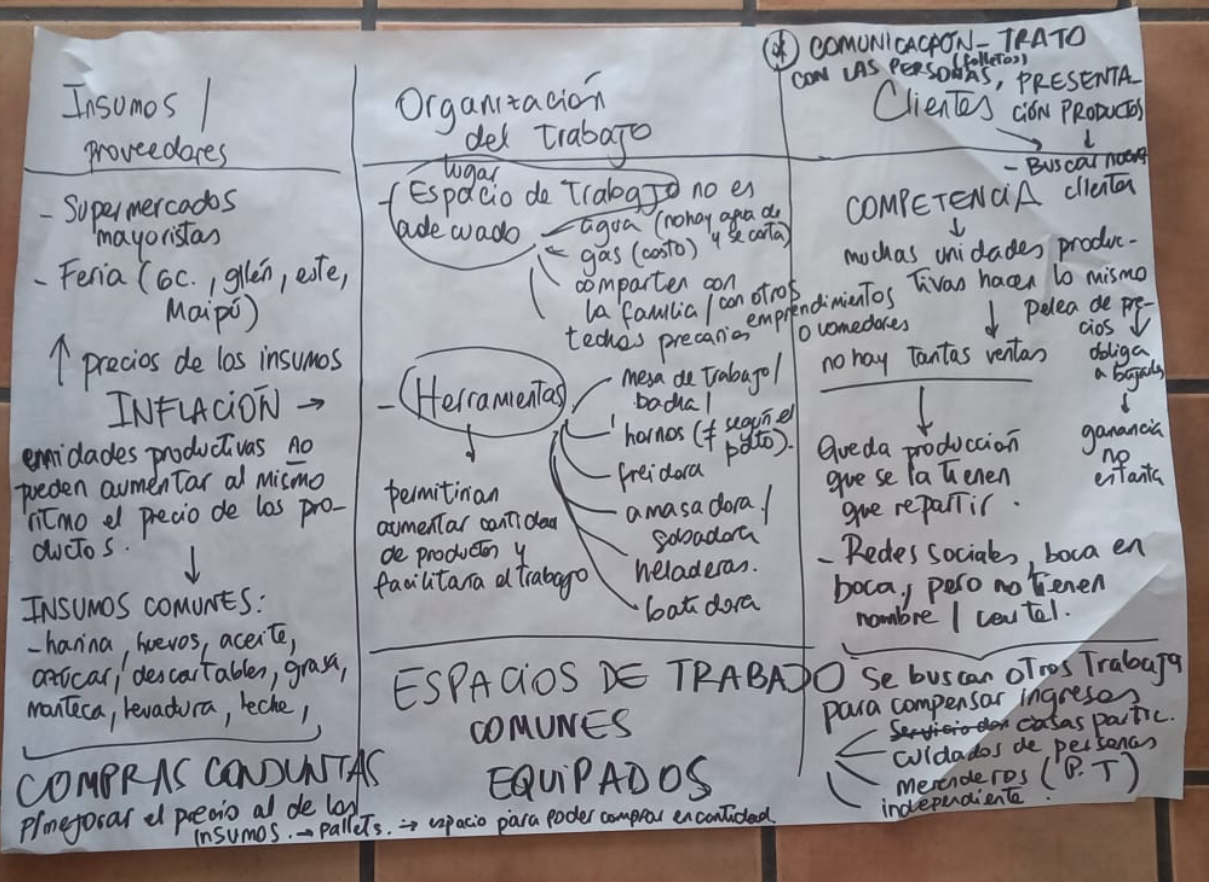 Insumos /
proveedores
- Supermercados
mayoristas
- Feria (GC., gllén, este,
Maipú)
↑ precios de los insumos
INFLACIÓN →
unidades productivas no
pueden aumentar al mismo
ritmo el precio de los pro-
ductos.
↓
INSUMOS COMUNES:
- harina, huevos, aceite,
azúcar, descartables, grasa,
manteca, levadura, leche,
COMPRAS CONJUNTAS
p/mejorar el precio al de los
insumos. → pallets. → espacio para poder comprar en cantidad.
Organización
del trabajo
lugar
- Espacio de Trabajo no es
adecuado
agua (no hay agua de
y se corta)
gas (costo)
comparten con
la familia / con otros
emprendimientos
o comedores
techos precarios
- Herramientas
↓
permitirían
aumentar cantidad
de productos y
facilitaría el trabajo
mesa de trabajo /
bacha /
hornos (≠ según el
pdto).
freidora
amasadora /
sobadora
heladeras.
batidora
ESPACIOS DE TRABAJO
COMUNES
EQUIPADOS
* COMUNICACIÓN - TRATO
(folletos)
CON LAS PERSONAS, PRESENTA
CIÓN PRODUCTOS
Clientes
- Buscar nuevos
clientes
COMPETENCIA
↓
muchas unidades produc-
tivas hacen lo mismo
↓
no hay tantas ventas
Pelea de pre-
cios ↓
obliga
a bajarlos
↓
ganancia
no
es tanta
↓
Queda producción
que se la tienen
que repartir.
- Redes sociales, boca en
boca, pero no tienen
nombre /
Se buscan otros trabajos
para compensar ingresos
casas partic.
cuidados de personas
merenderos (P.T)
independiente.